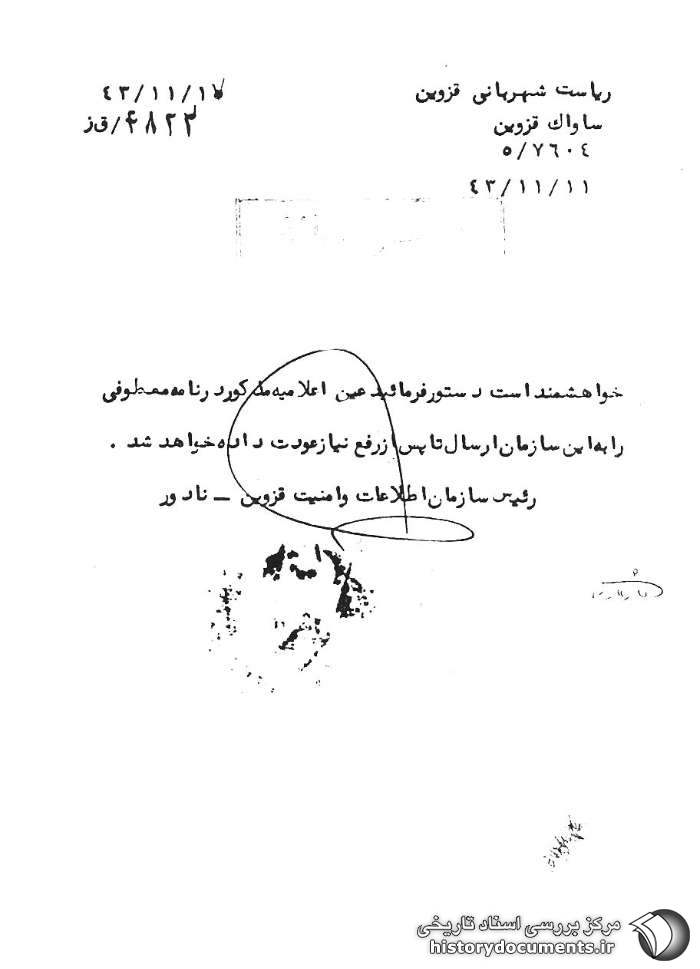 ریاست شهربانی قزوین
ساواك قزوین
۵/۷۶۰٤
٤۳/۱۱/۱۱
٤۳/۱۱/۱۷
۴۸۲۲/ق ز
خواهشمند است دستور فرمائید عین اعلامیه مذکور در نامه معطوفی
را به این سازمان ارسال تا پس از رفع نیاز عودت داده خواهد شد .
رئیس سازمان اطلاعات و امنیت قزوین – نادور
مرکز بررسی اسناد تاریخی
historydocuments.ir